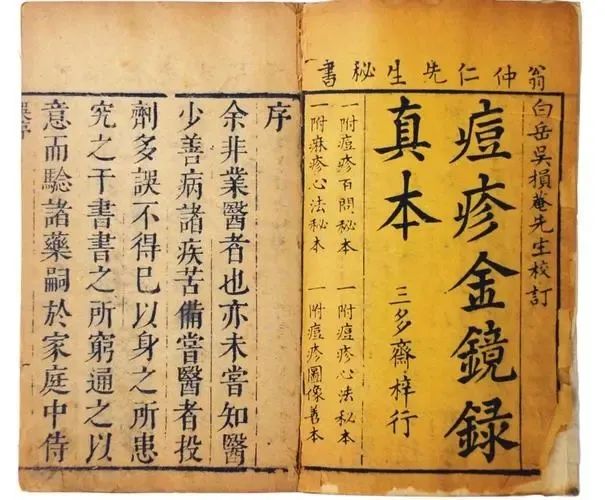 翁仲仁先生秘書
白岳吳損菴先生校訂
痘疹金鏡録
真本
三多齋梓行
一附痘疹百問秘本
一附痘疹心法秘本
一附麻疹心法秘本
一附痘疹圖像善本
序
余非業醫者也亦未嘗知醫
少善病諸疾苦備嘗醫者投
劑多誤不得巳以身之所患
究之于書書之所窮通之以
意而驗諸藥嗣於家庭中侍